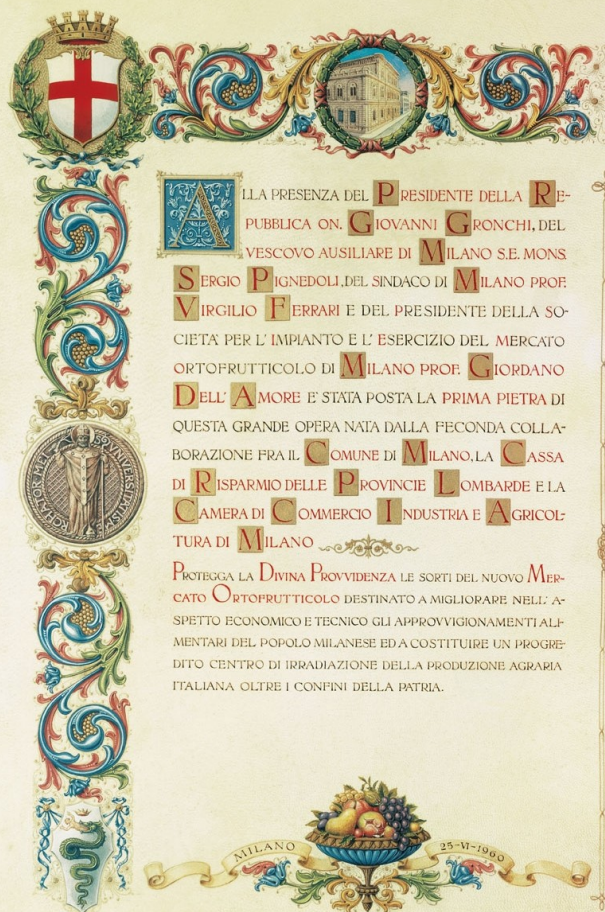 ALLA PRESENZA DEL PRESIDENTE DELLA RE-
PUBBLICA ON. GIOVANNI GRONCHI, DEL
VESCOVO AUSILIARE DI MILANO S.E. MONS.
SERGIO PIGNEDOLI, DEL SINDACO DI MILANO PROF.
VIRGILIO FERRARI E DEL PRESIDENTE DELLA SO-
CIETA' PER L'IMPIANTO E L'ESERCIZIO DEL MERCATO
ORTOFRUTTICOLO DI MILANO PROF. GIORDANO
DELL'AMORE E' STATA POSTA LA PRIMA PIETRA DI
QUESTA GRANDE OPERA NATA DALLA FECONDA COLLA-
BORAZIONE FRA IL COMUNE DI MILANO, LA CASSA
DI RISPARMIO DELLE PROVINCIE LOMBARDE E LA
CAMERA DI COMMERCIO INDUSTRIA E AGRICOL-
TURA DI MILANO
PROTEGGA LA DIVINA PROVVIDENZA LE SORTI DEL NUOVO MER-
CATO ORTOFRUTTICOLO DESTINATO A MIGLIORARE NELL'A-
SPETTO ECONOMICO E TECNICO GLI APPROVVIGIONAMENTI ALI-
MENTARI DEL POPOLO MILANESE ED A COSTITUIRE UN PROGRE-
DITO CENTRO DI IRRADIAZIONE DELLA PRODUZIONE AGRARIA
ITALIANA OLTRE I CONFINI DELLA PATRIA.
MILANO 25-VI-1960